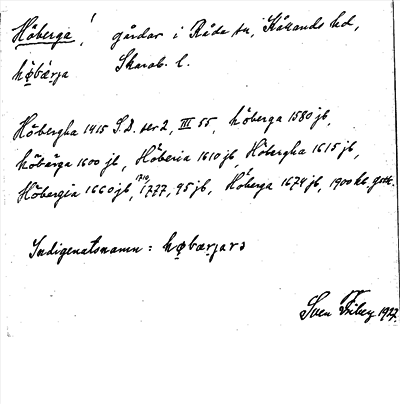 Höberga, gårdar i Råda sn, Kållands hd,
høbærja Skarab. l.
Höbergha 1415 S.D. ser 2, III 55, höberga 1580 jb,
höbärga 1600 jb, Höberia 1610 jb, Höbergha 1615 jb,
Höbergia 1660 jb, 1777, 95 jb, Höberga 1674 jb, 1900 kb. gstk.
Indigenatsnamn: høbærjarə
Sven Friberg 1927.